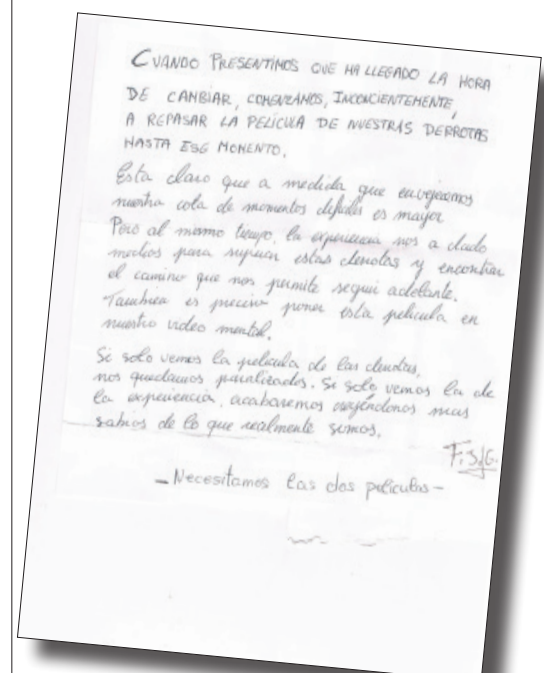 CUANDO PRESENTIMOS QUE HA LLEGADO LA HORA
DE CAMBIAR, COMENZAMOS, INCONCIENTEMENTE,
A REPASAR LA PELÍCULA DE NUESTRAS DERROTAS
HASTA ESE MOMENTO.
Esta claro que a medida que envejecemos
nuestra cola de momentos dificiles es mayor
Pero al mismo tiempo, la experiencia nos a dado
medios para superar estas derrotas y encontrar
el camino que nos permite seguir adelante.
Tambien es preciso poner esta pelicula en
nuestro video mental.
Si solo vemos la pelicula de las derrotas,
nos quedamos paralizados. Si solo vemos la de
la experiencia, acabaremos creyéndonos mas
sabios de lo que realmente somos.
F.S.G.
- Necesitamos las dos peliculas -